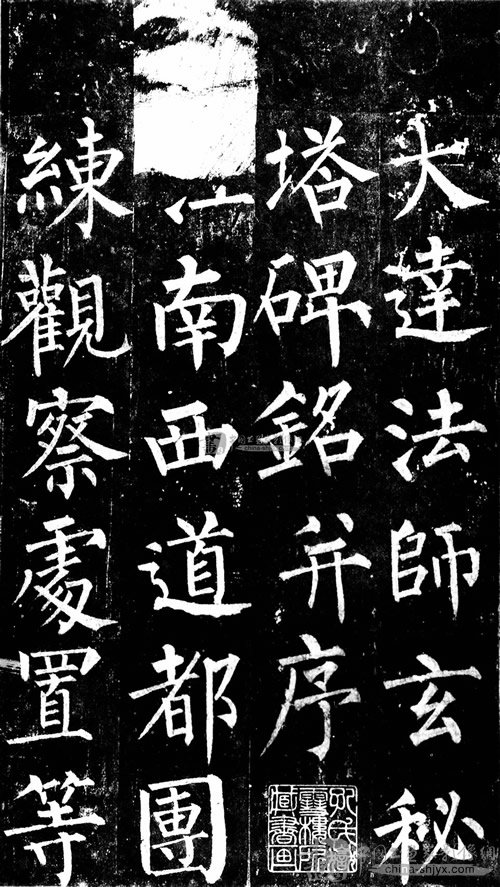 大達法師玄秘
塔碑銘并序
南西道都團
練觀察處置等
china-shjyx.com